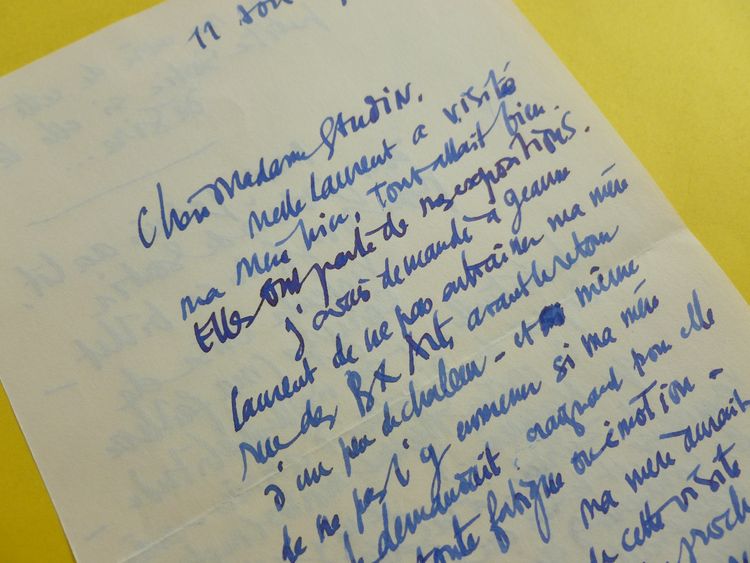 11
Chère Madame Gaudin.
Melle Laurent a visité
ma mère hier, tout allait bien.
Elles ont parlé de nos expositions.
J'avais demandé à Jeanne
Laurent de ne pas entraîner ma mère
rue des Bx Arts avant le retour
d'un peu de chaleur - et même
de ne pas l'y emmener si ma mère
le demandait : craignant pour elle
toute fatigue ou émotion -
ma mère aurait
cette visite